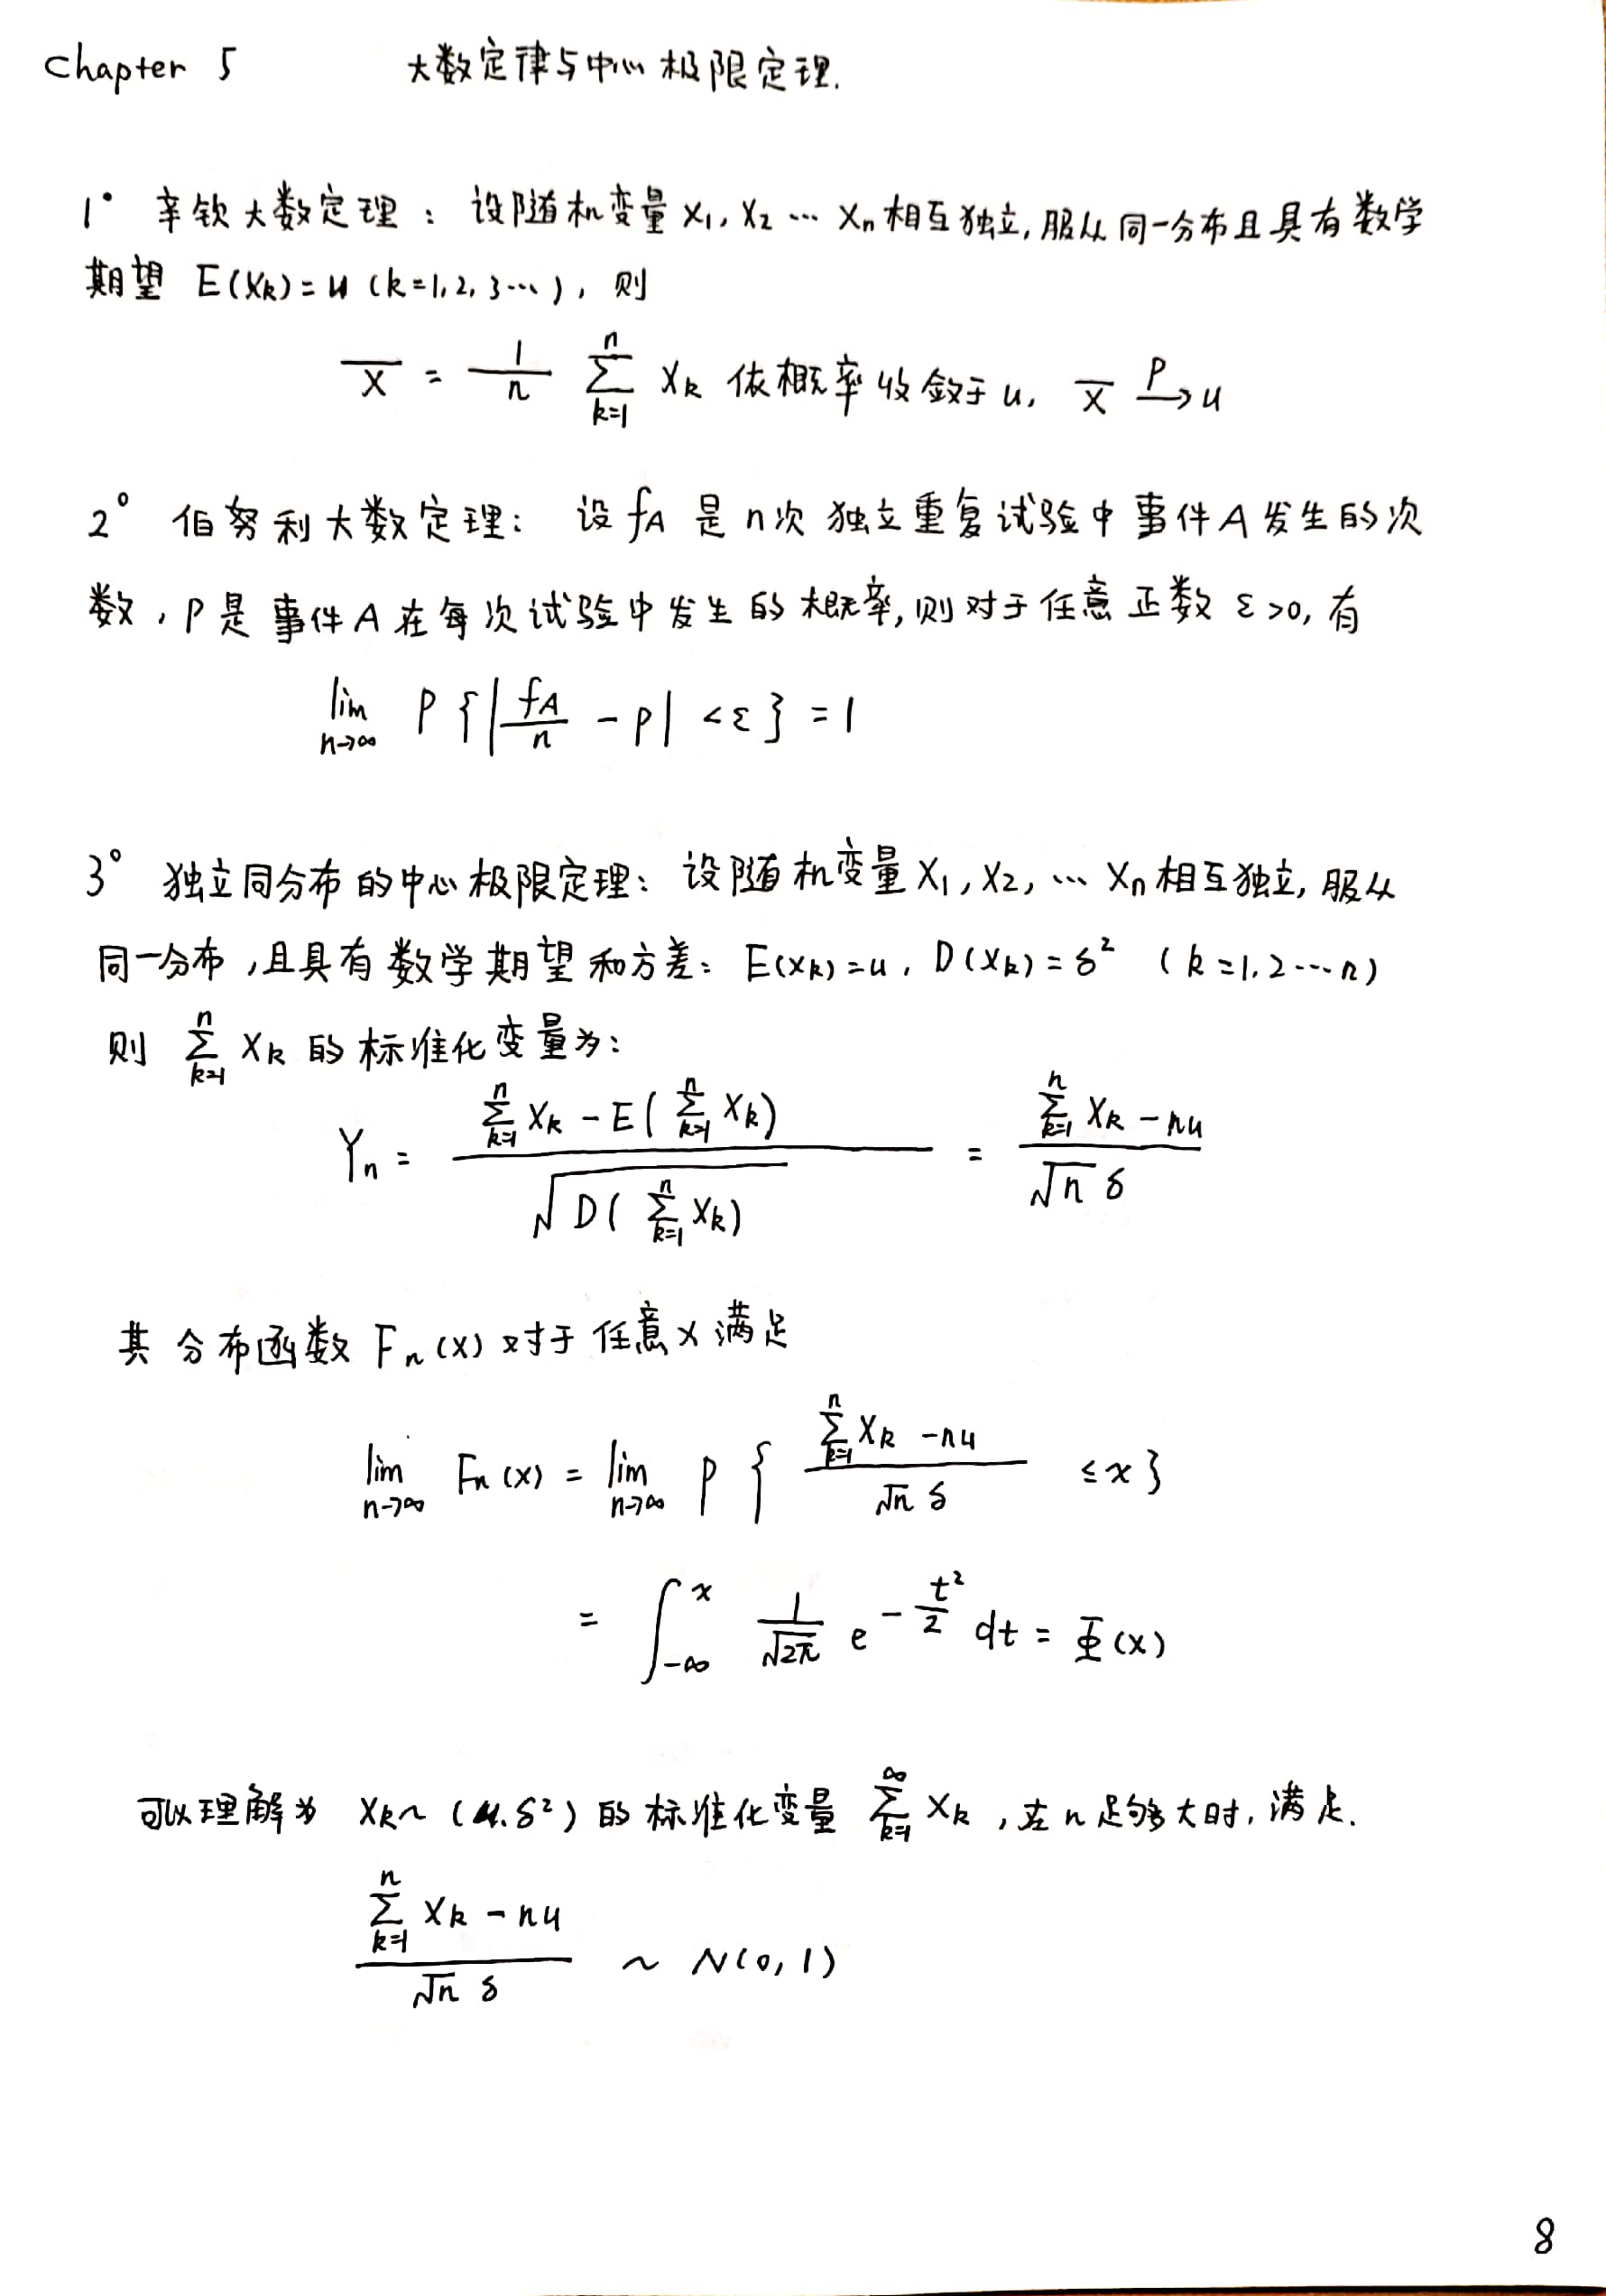 Chapter 5 大数定律与中心极限定理.
1° 辛钦大数定理：设随机变量 X₁, X₂ ⋯ Xₙ 相互独立, 服从同一分布且具有数学
期望 E(Xₖ)=u (k=1,2,3⋯), 则
X̄ = 1/n ∑_{k=1}^{n} Xₖ 依概率收敛于 u, X̄ \xrightarrow{P} u
2° 伯努利大数定理： 设 f_A 是 n次 独立重复试验中事件A发生的次
数, p是事件A在每次试验中发生的概率, 则对于任意正数 ε>0, 有
lim_{n→∞} P{|f_A/n - p| <ε} = 1
3° 独立同分布的中心极限定理：设随机变量 X₁, X₂, ⋯ Xₙ 相互独立, 服从
同一分布, 且具有数学期望和方差: E(Xₖ)=u, D(Xₖ)=δ² (k=1,2⋯n)
则 ∑_{k=1}^{n} Xₖ 的标准化变量为:
Yₙ = (∑_{k=1}^{n} Xₖ - E(∑_{k=1}^{n} Xₖ)) / √(D(∑_{k=1}^{n} Xₖ)) = (∑_{k=1}^{n} Xₖ - nu) / (√n δ)
其分布函数 Fₙ(x) 对于任意x满足
lim_{n→∞} Fₙ(x) = lim_{n→∞} P{ (∑_{k=1}^{n} Xₖ - nu) / (√n δ) ≤ x}
= ∫_{-∞}^{x} 1/√(2π) e^{-t²/2} dt = Φ(x)
可以理解为 Xₖ~(u, δ²) 的标准化变量 ∑_{k=1}^{∞} Xₖ, 在n足够大时, 满足.
(∑_{k=1}^{n} Xₖ - nu) / (√n δ) ~ N(0,1)
8